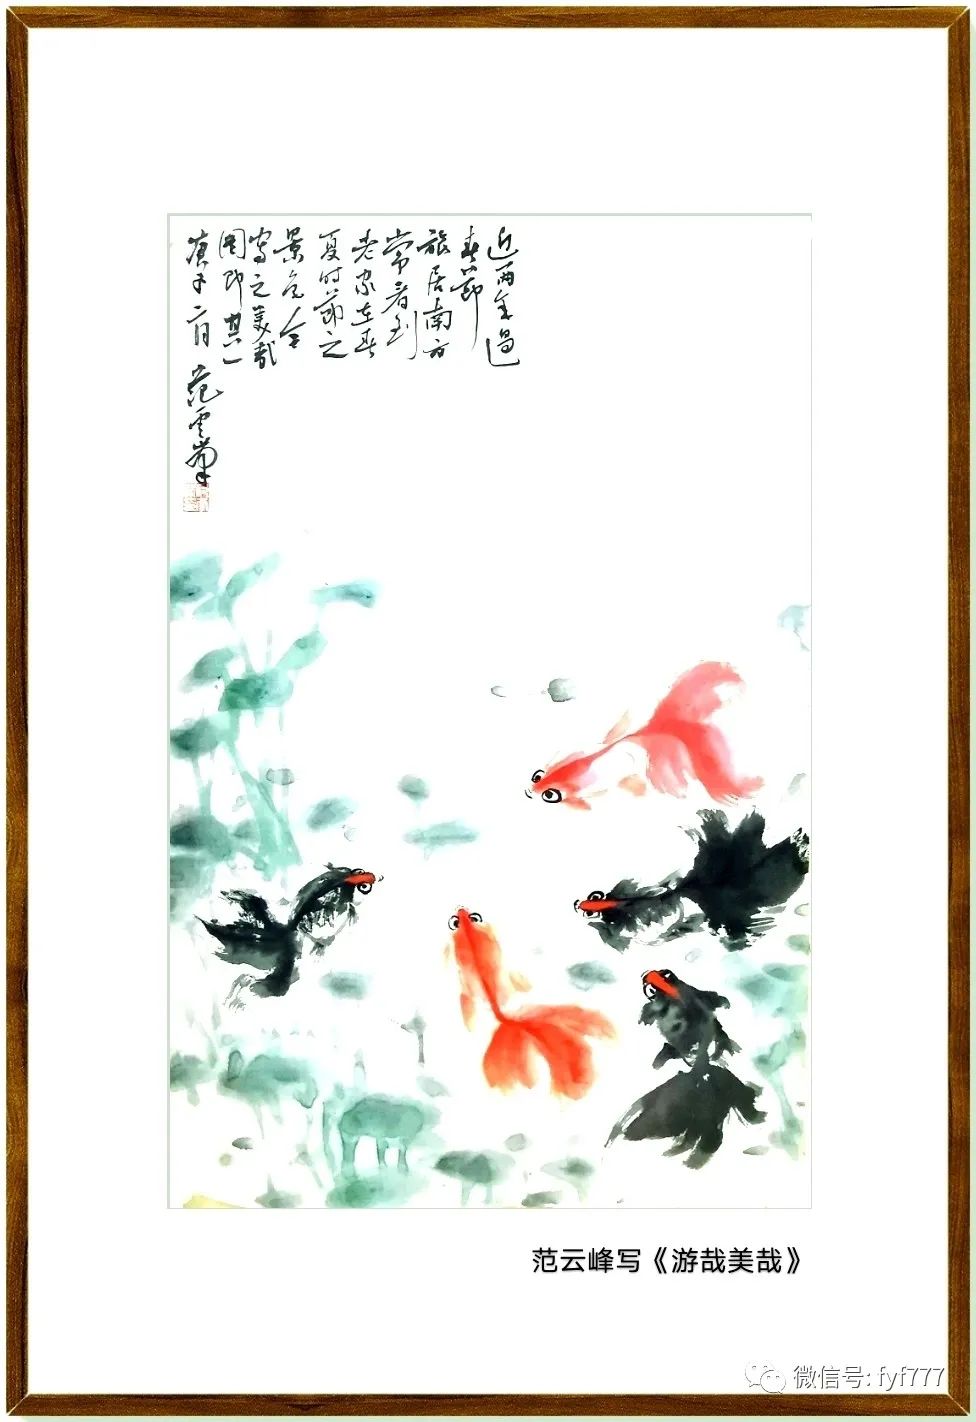 近两年过
春节
旅居南方
常看到
老家在春
夏时节之
景色今
写之美哉
图即其一
庚子二月 范云峰
范云峰写《游哉美哉》
微信号: fyf777